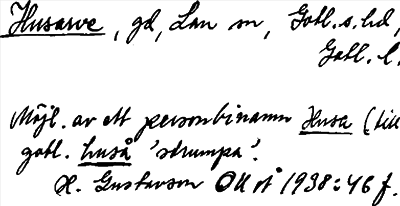 Husarve, gd, Lau sn, Gotl. s. hd,
Gotl. l.
Möjl. av ett personbinamn Husa (till
gotl. huså 'strumpa'.
H. Gustavson 1938: 46 f.